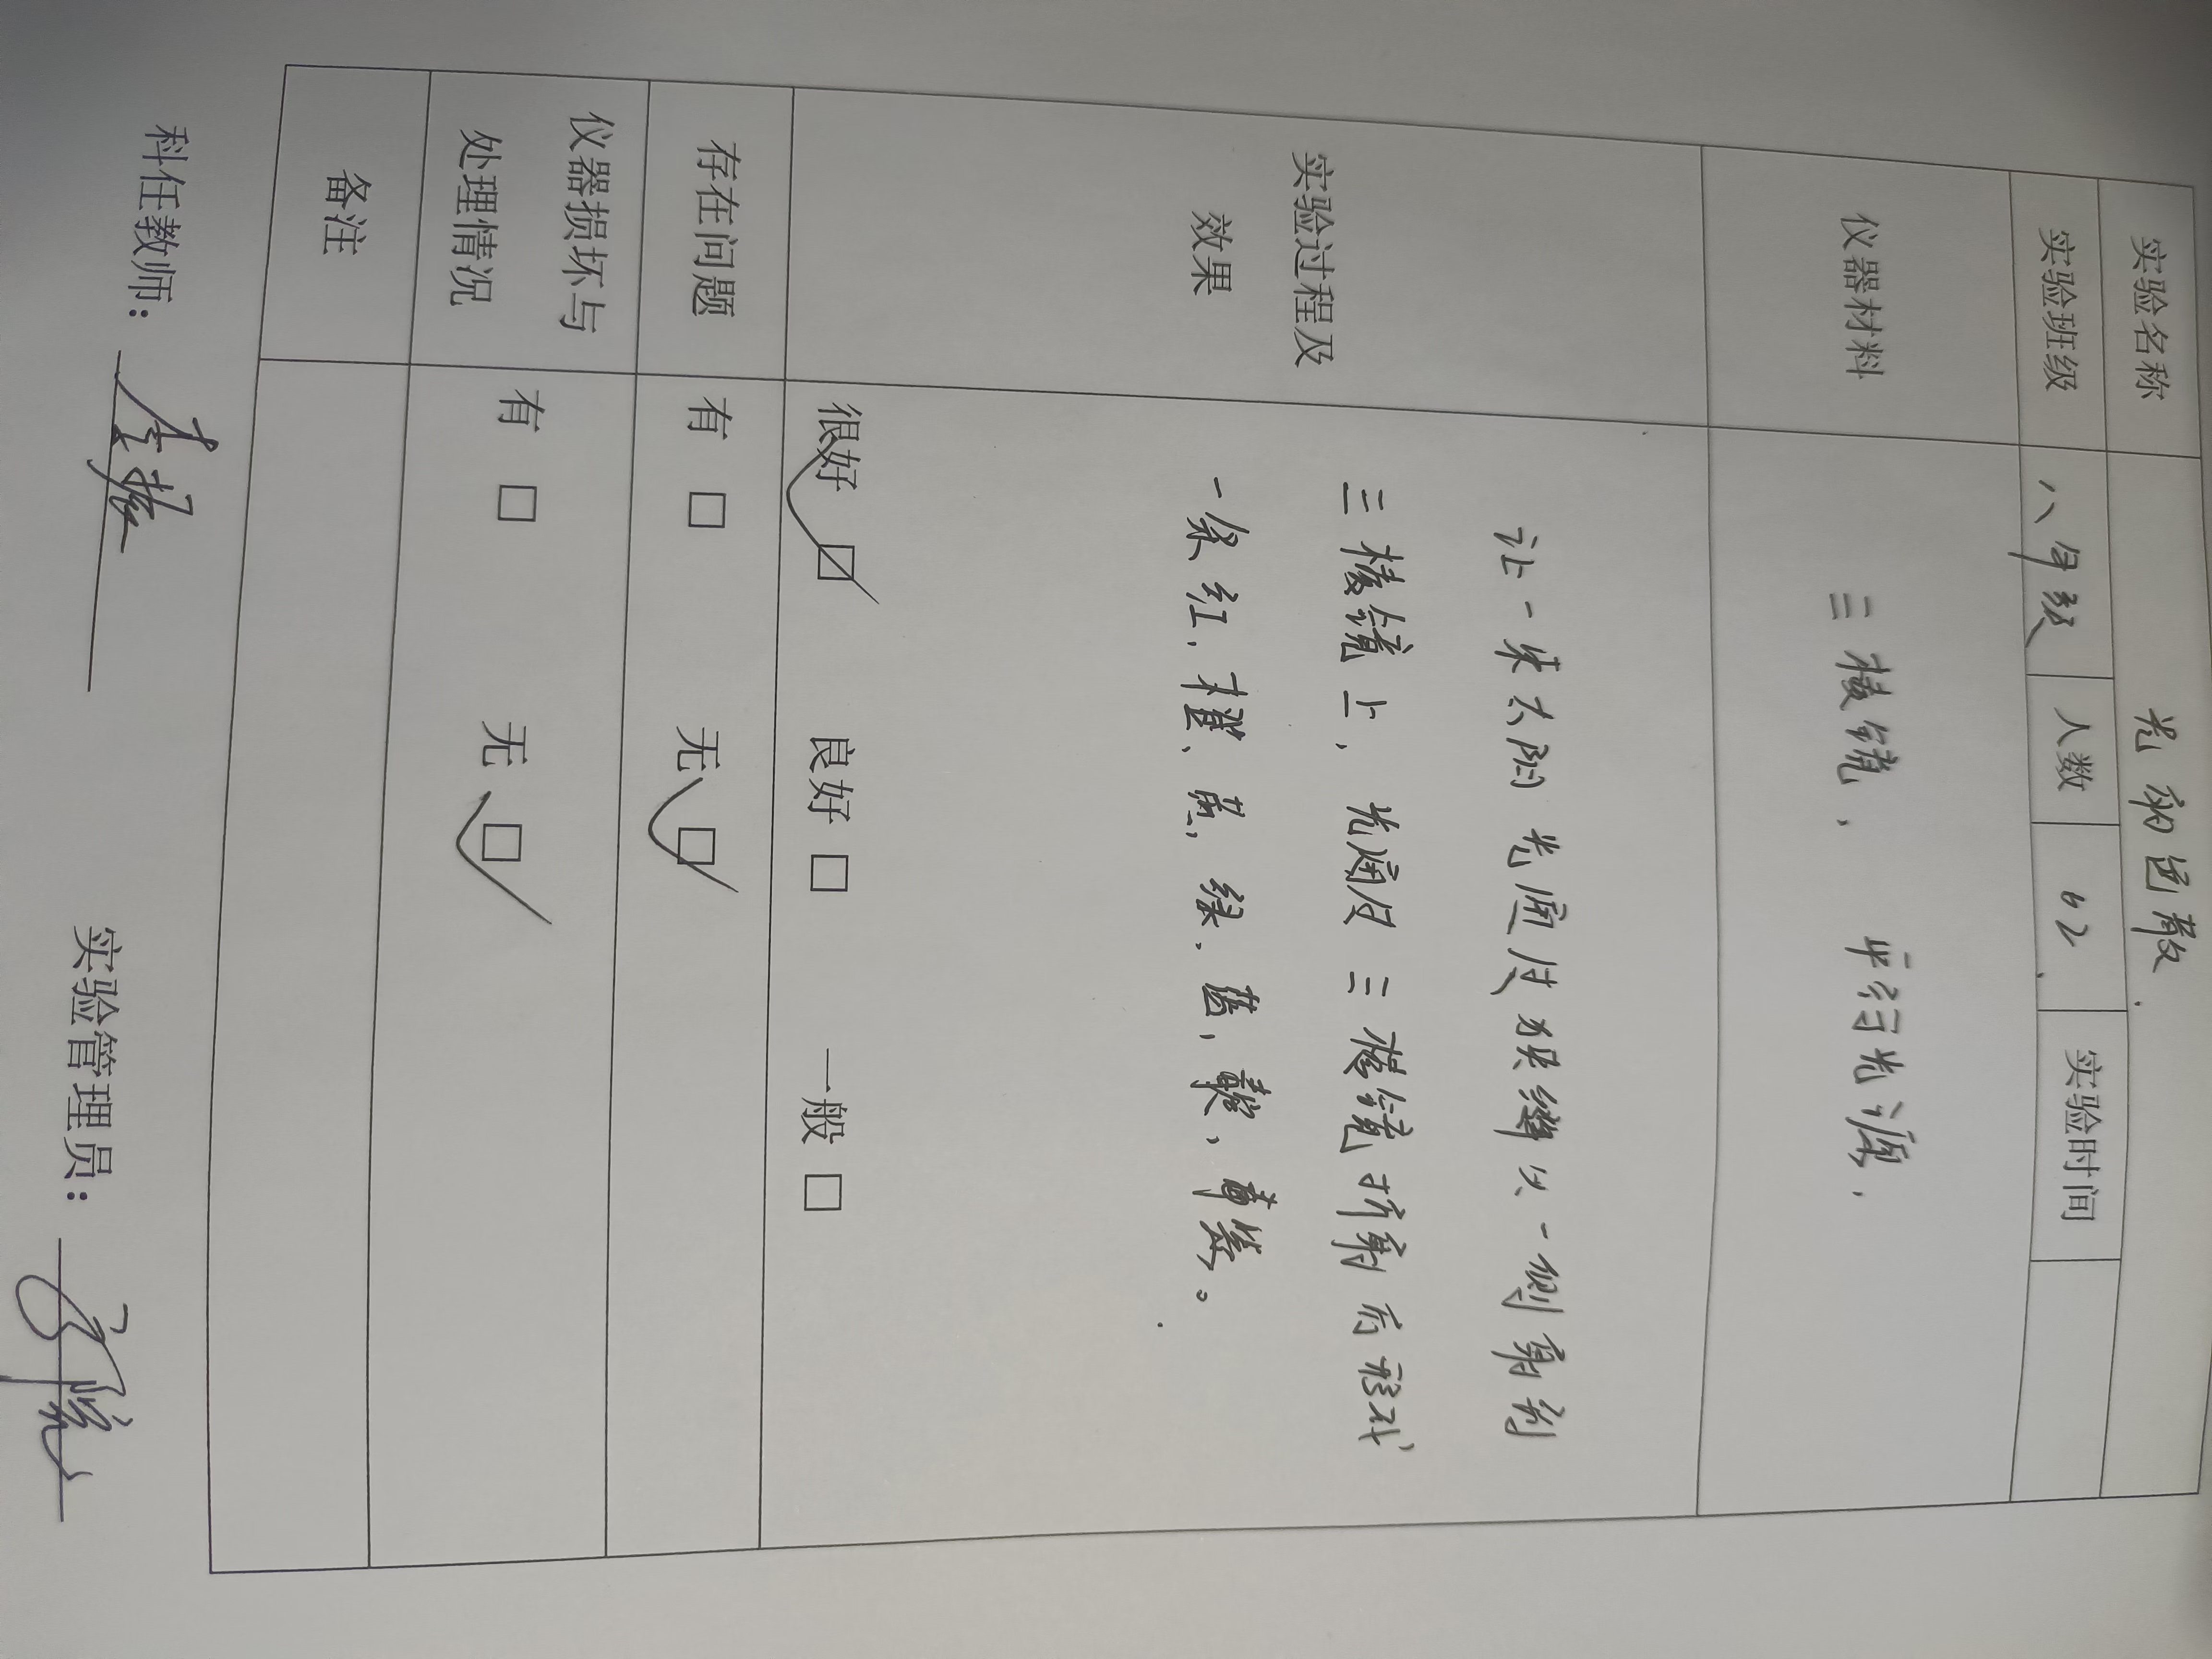 实验名称 光的色散.
实验班级 八年级 人数 62 实验时间
仪器材料 三棱镜, 平行光源,
实验过程及
效果
让一束太阳光通过狭缝从一侧射到
三棱镜上, 光通过三棱镜折射后形成
一条红, 橙、黄, 绿, 蓝, 靛, 
很好 ☑ 良好 □ 一般 □
存在问题 有 □ 无 ☑
仪器损坏与
处理情况 有 □ 无 ☑
备注
科任教师:
实验管理员: